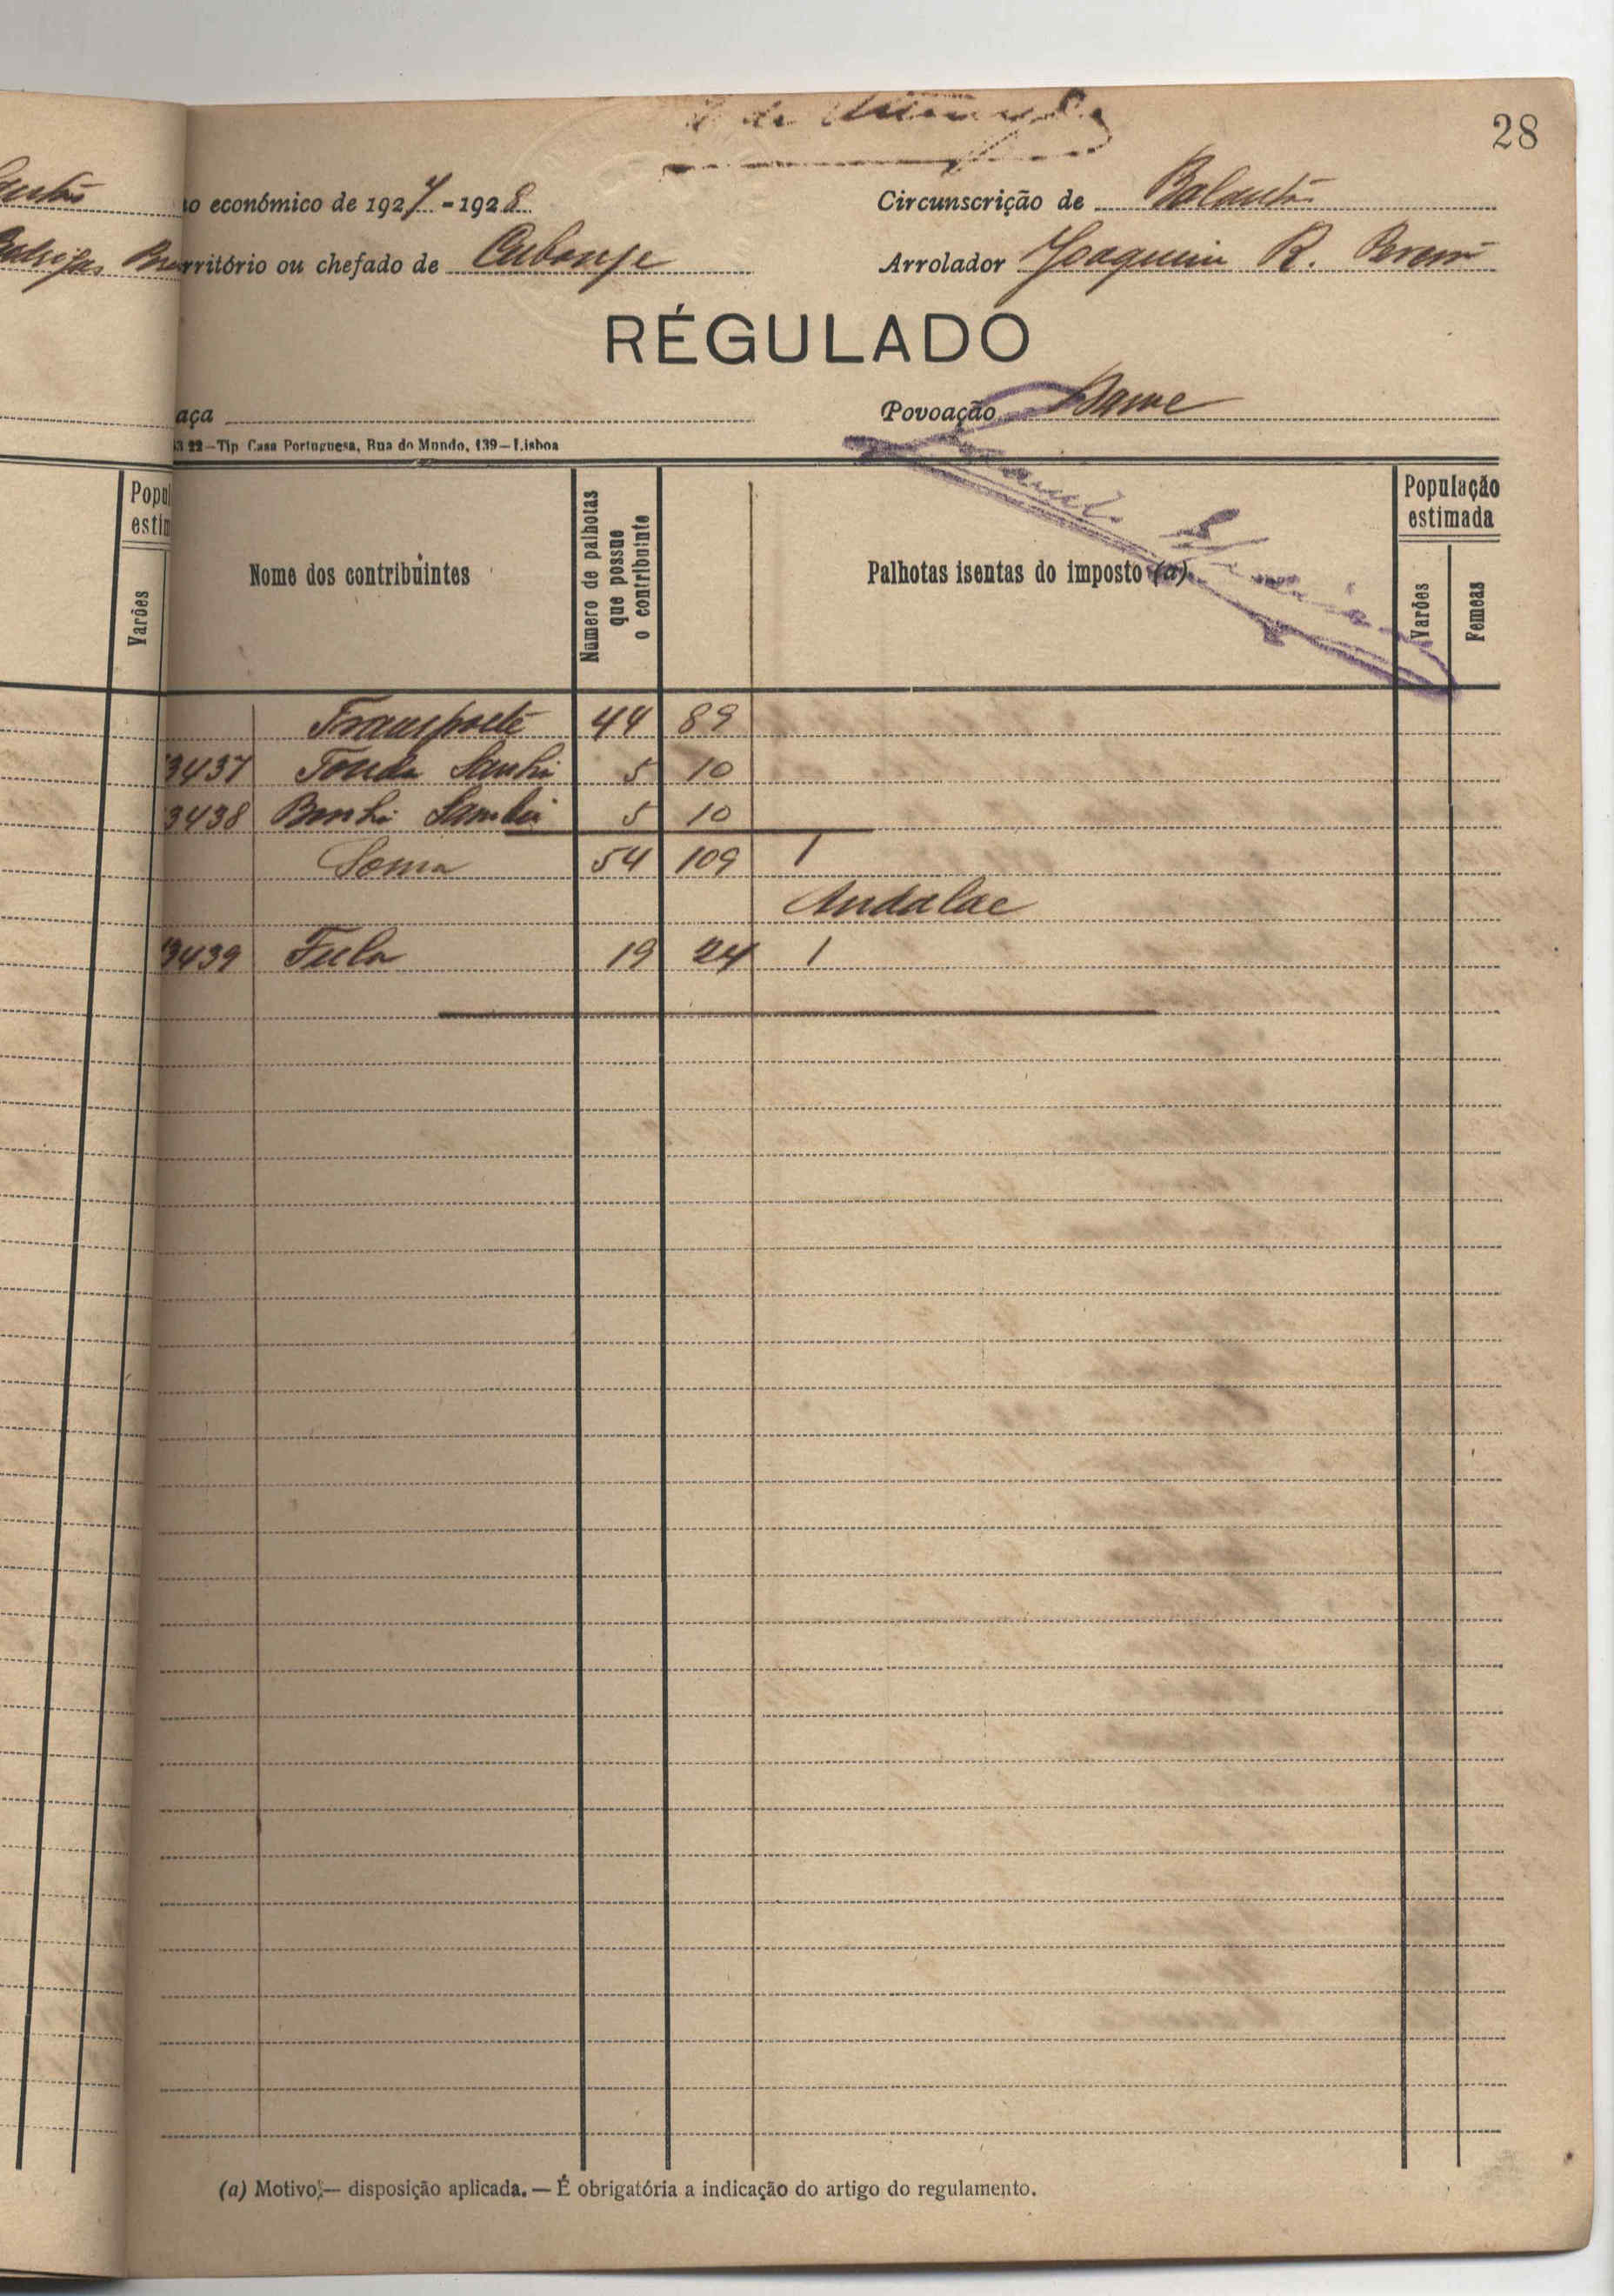 28
o económico de 1927 - 1928
Circunscrição de Balantas
rritório ou chefado de Cubonje
Arrolador Joaquim R. Pereira
RÉGULADO
aça
Povoação Dame
22—Tip Casa Portuguesa, Rua do Mundo, 139—Lisboa
Popul
estim
Varões
Nome dos contribuintes
Numero de palhotas
que possue
o contribuinte
Palhotas isentas do imposto (a)
População
estimada
Varões
Femeas
Transporte 44 89
3437 Tonda Sanhi 5 10
3438 Bonhi Sambú 5 10
Soma 54 109 1
Andalac
3439 Fula 19 24 1
(a) Motivo;— disposição aplicada. — É obrigatória a indicação do artigo do regulamento.